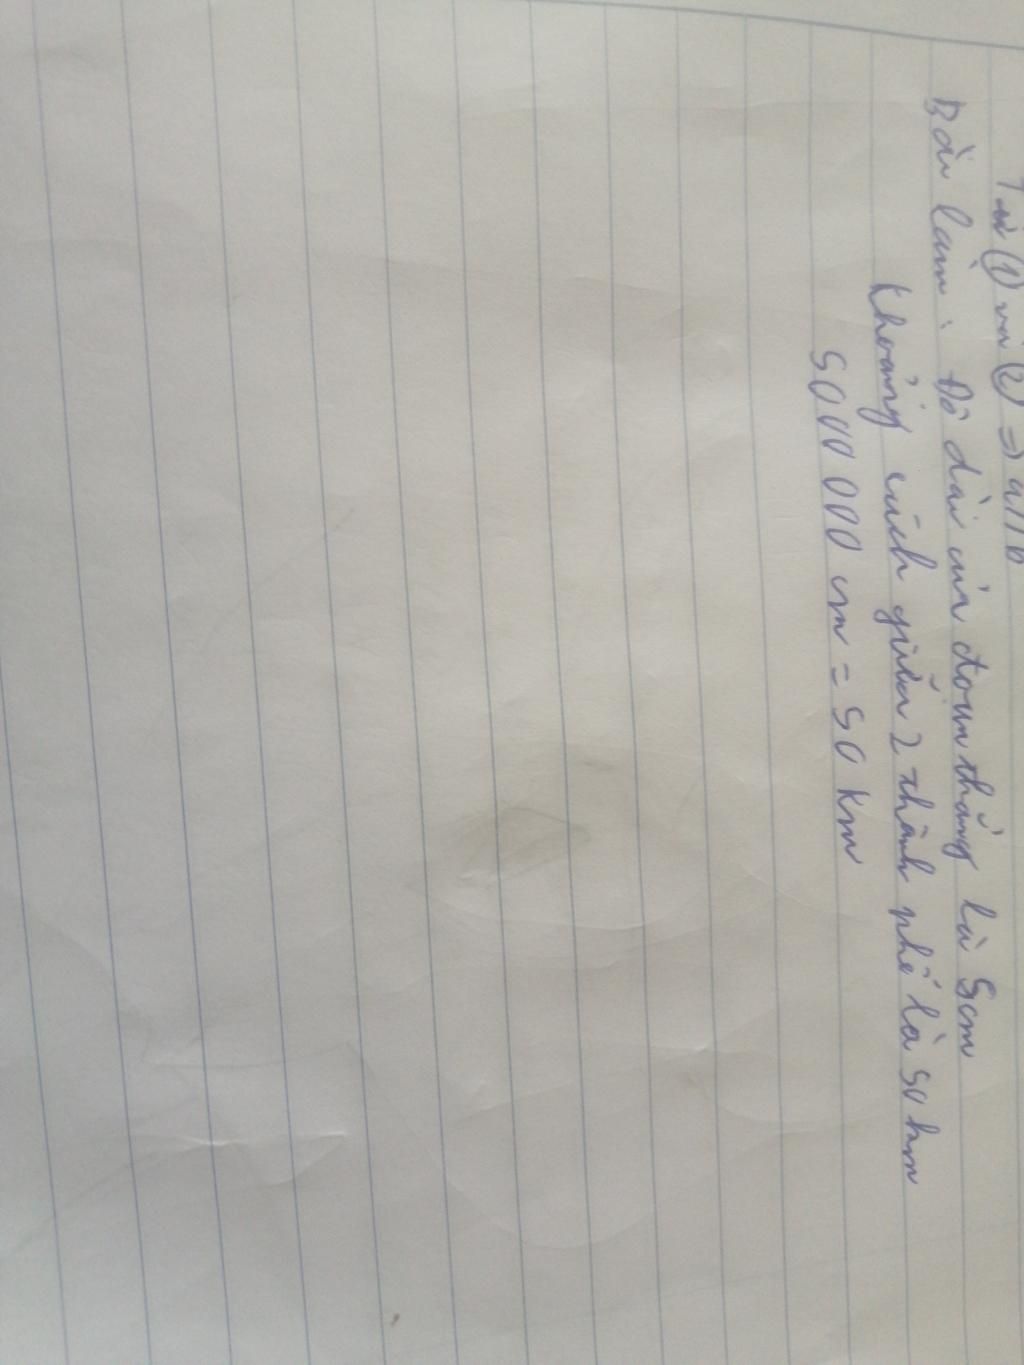 Từ (1) và (2) => a//b
Bài làm: Độ dài của đoạn thẳng là 5cm
Khoảng cách giữa 2 thành phố là 50 km
5000 000 cm = 50 km